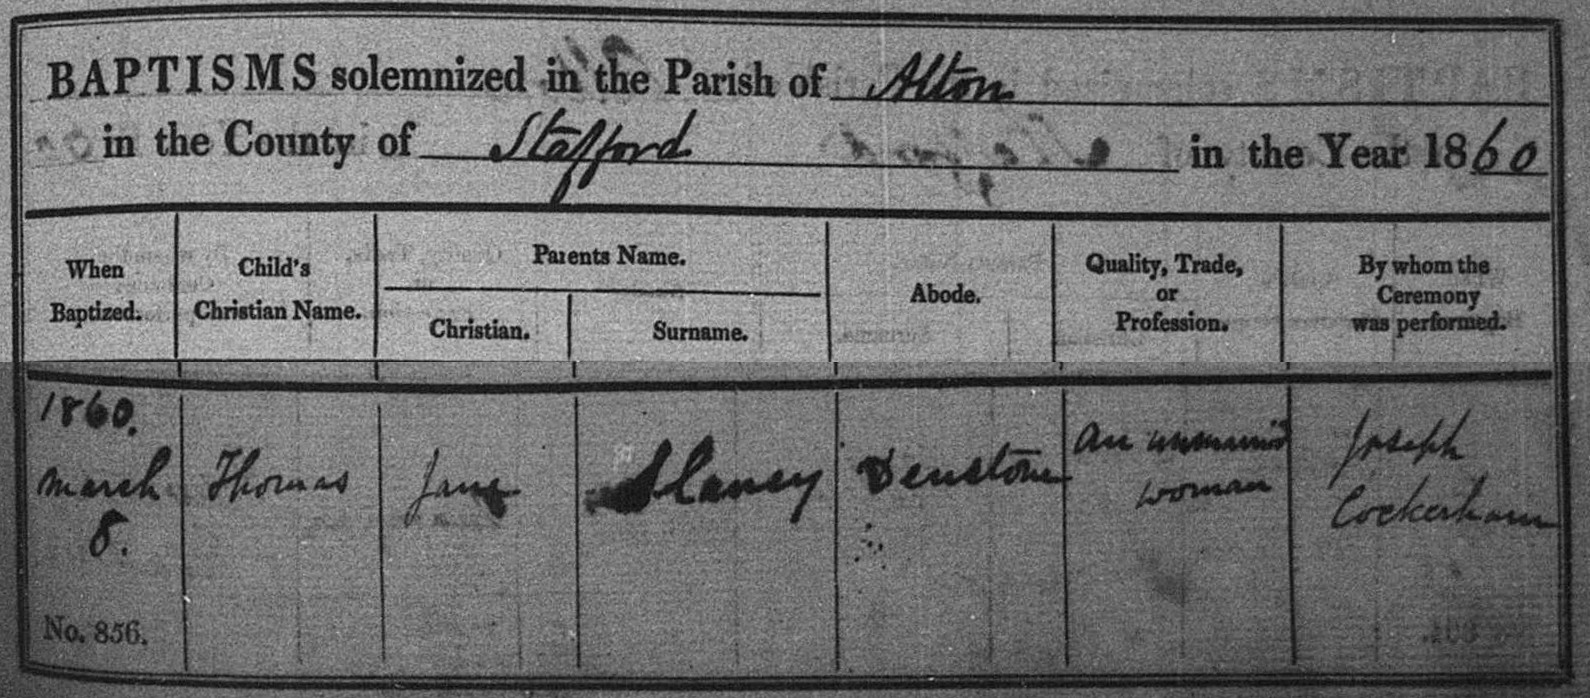 BAPTISMS solemnized in the Parish of Alton
in the County of Stafford in the Year 1860
When Baptized.
Child's Christian Name.
Parents Name.
Christian.
Surname.
Abode.
Quality, Trade, or Profession.
By whom the Ceremony was performed.
1860.
March
8.
Thomas
Jane
Slaney
Denstone
An unmarried
woman
Joseph
Cockerham
No. 856.